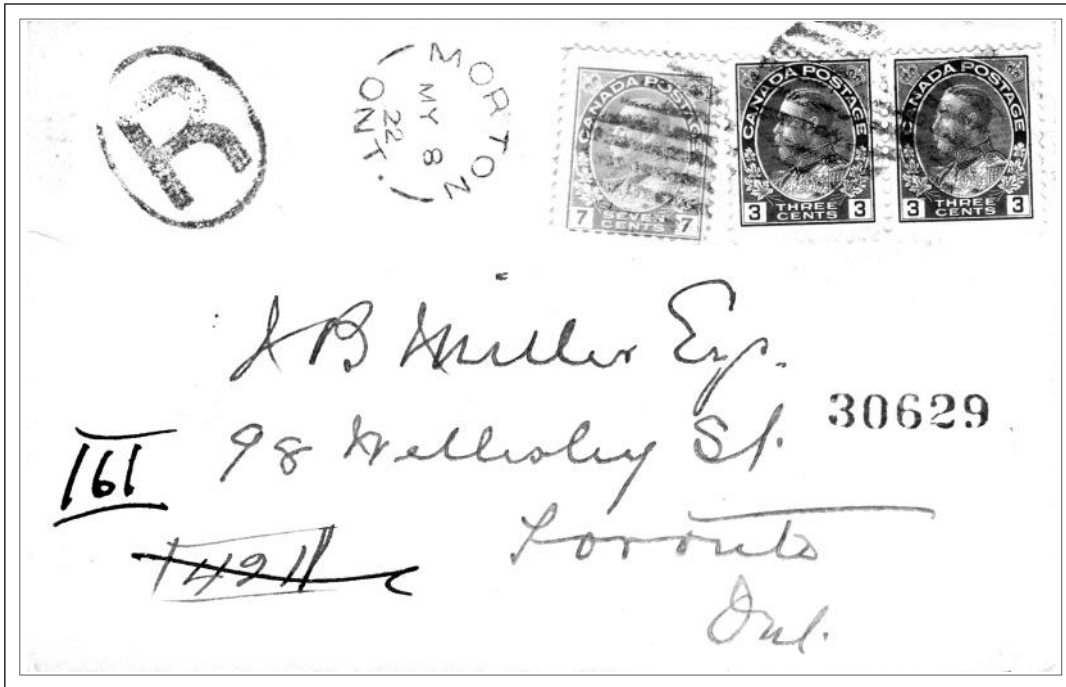 R
MORTON
MY 8
22
ONT.
CANADA POSTAGE
7 SEVEN CENTS 7
CANADA POSTAGE
3 THREE CENTS 3
CANADA POSTAGE
3 THREE CENTS 3
B Miller Esq.
30629
98 Wellesley St.
161
Toronto
Ont.